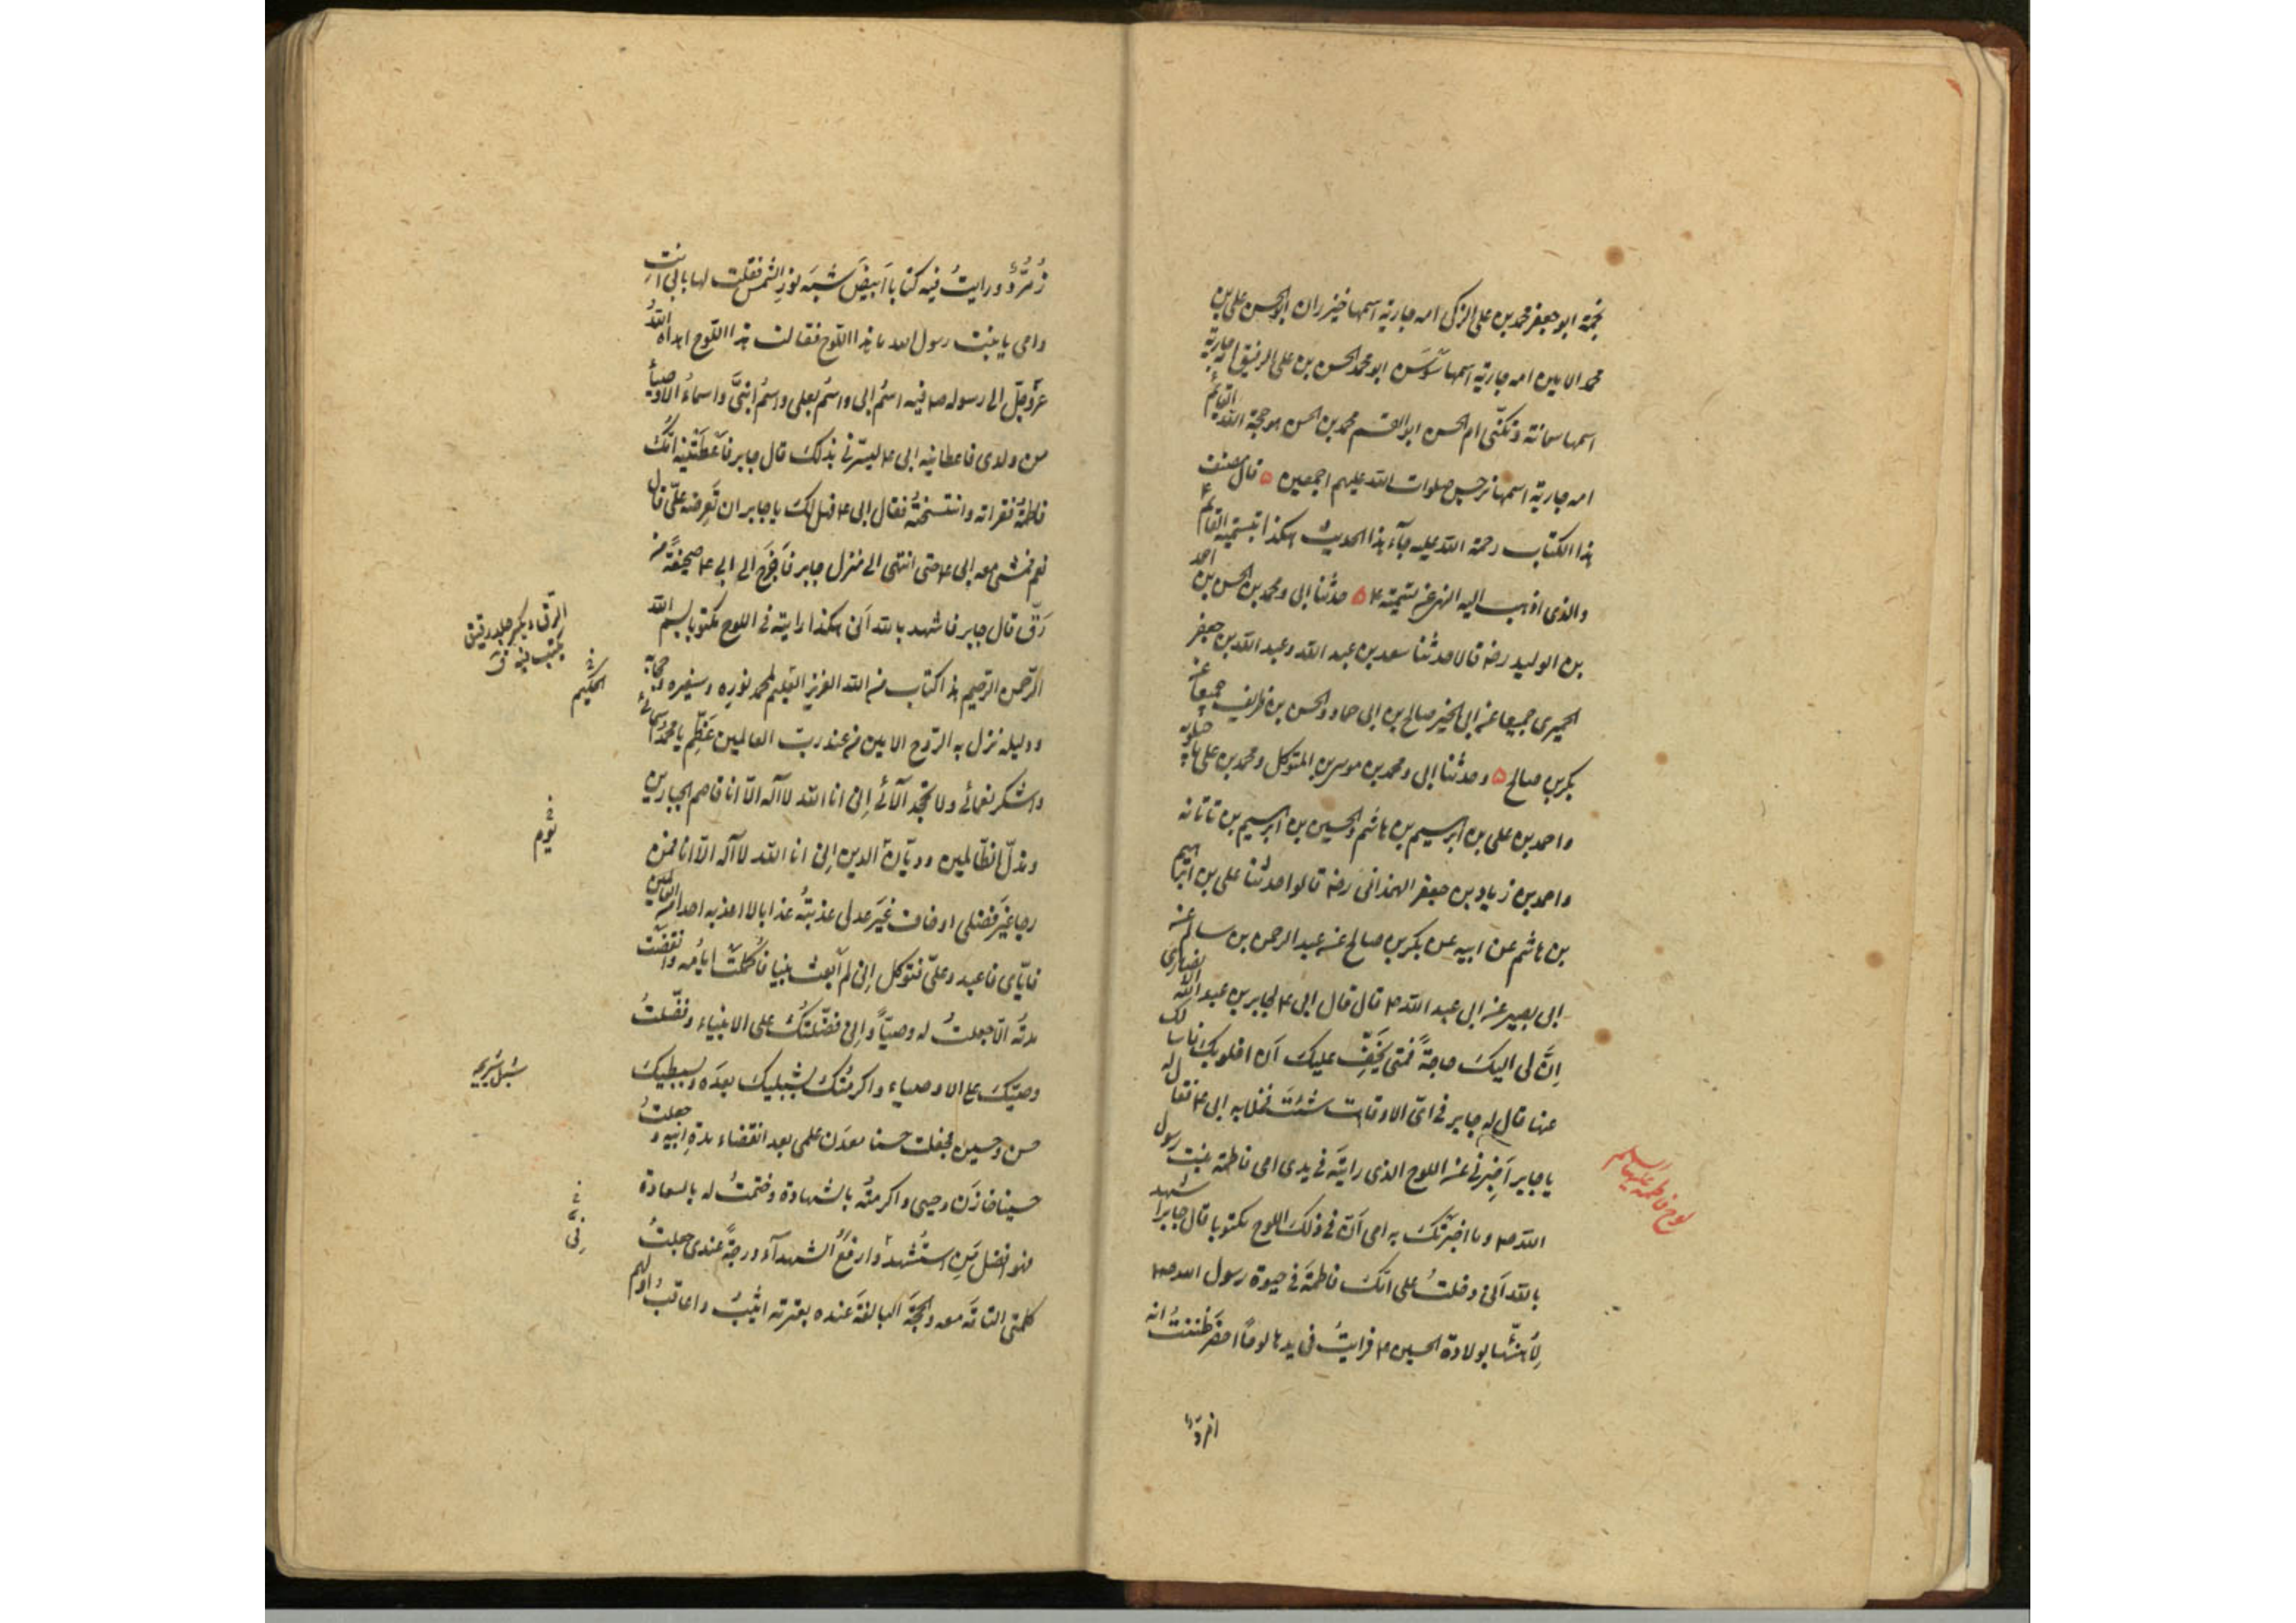 نجمة ابو جعفر محمد بن علي الزكي امه جارية اسمها خيزران ابو الحسن علي بن
محمد الامين امه جارية اسمها سَوسَن ابو محمد الحسن بن علي الرفيق امه جارية
اسمها سمانة وتكنّى ام الحسن ابو القسم محمد بن الحسن هو حجة الله القائم
امه جارية اسمها نرجس صلوات الله عليهم اجمعين ۵ قال مصنف
هذا الكتاب رحمة الله عليه جآء هذا الحديث هكذا بتسمية القائم ع
والذي اذهب اليه النهي عن تسميته ع ۵ حدثنا ابي ومحمد بن الحسن بن احمد
بن الوليد رضه قالا حدثنا سعد بن عبد الله وعبد الله بن جعفر
الحميري جميعا عن ابي الخير صالح بن ابي حماد والحسن بن ظريف جميعا عن
بكر بن صالح ۵ وحدثنا ابي ومحمد بن موسى بن المتوكل ومحمد بن علي ماجيلويه
واحمد بن علي بن ابرهيم بن هاشم والحسين بن ابرهيم بن تاتانه
واحمد بن زياد بن جعفر الهمداني رضه قالوا حدثنا علي بن ابرهيم
بن هاشم عن ابيه عن بكر بن صالح عن عبد الرحمن بن سالم عن
ابي بصير عن ابي عبد الله ع قال قال ابي ع لجابر بن عبد الله الانصاري
اِنَّ لي اليكَ حاجةً فمتى يَخِفّ عليكَ اَن اخلو بك فاسالك
عنها قال له جابر في ايّ الاوقات شئتَ فخلا به ابي ع فقال له
يا جابر اَخبِرني عن اللوح الذي رايتَه في يدي امي فاطمة بنت رسول
الله ص وما اخبَرَتكَ به امي اَنّ في ذلكَ اللوح مكتوبا قال جابر اشهد
بالله اَني دخلتُ على امّكَ فاطمةَ في حيوة رسول الله ص
لِاُهنّئها بولادة الحسين ع فرايتُ في يدها لوحًا اخضرَ ظننتُ انه
لوح فاطمة عليها السلم
زُمُرُّدٌ ورايتُ فيه كتابا اَبيضَ شبهَ نورِ الشمس فقلت لها بابي انتِ
وامي يا بنت رسول الله ما هذا اللوح فقالت هذا اللوح اهداه اللهُ
عزّ وجلّ الى رسوله ص فيه اسمُ ابي واسمُ بعلي واسمُ ابنَيَّ واسماءُ الاوصياءِ
من ولدي فاعطانيه ابي ع ليسّرني بذلكَ قال جابر فاَعطَتنيه امّكَ
فاطمةُ فقراته وانتسختُه فقال ابي ع فهل لكَ يا جابر ان تَعرِضه عليّ قال
نعم فمشى معه ابي ع حتى انتهى الى منزل جابر فاَخرَجَ الى ابي ع صحيفةً من
رَقّ قال جابر فاشهد بالله اَني هكذا رايته في اللوح مكتوبا بسم الله
الرّحمن الرّحيم هذا كتاب من الله العزيز العليم لمحمد نورِه وسفيره وحجابه
ودليله نزل به الرّوح الامين من عند ربّ العالمين عَظِّم يا محمد اسمائي
واشكر نعمائي ولا تجحَد آلائي اِنّي انا الله لا اله الّا انا قاصم الجبارين
ومذلّ الظّالمين وديّان الدين اِنّي انا الله لا اله الّا انا فمن
رجا غيرَ فضلي او خاف غيرَ عدلي عذبتُه عذابا لا اعذبه احدا من العالمين
فايّاي فاعبد وعليّ فتوكل اِنّي لم اَبعث نبيا فاُكمِلَت ايامُه وانقضَت
مدتُه الّا جعلتُ له وصيّاً واِنّي فضّلتُكَ على الانبياء وفضّلتُ
وصيّكَ على الاوصياء واكرمتُكَ بشبليكَ بعدَه وبسبطيكَ
حسن وحسين فجعلت حسنا معدَن علمي بعد انقضاء مدةِ ابيه وجعلتُ
حسينا خازنَ وحيي واكرمتُه بالشهادة وختمتُ له بالسعادة
فهو افضل مَنِ استُشهدَ وارفعُ الشهدآء درجةً عندي جعلتُ
كلمتي التامّةَ معه والحجّةَ البالغةَ عنده بعترته اثيبُ واعاقبُ اوّلهم
الرق ويكسر جلد رقيق
يكتب فيه ق
الحكيم
يوم